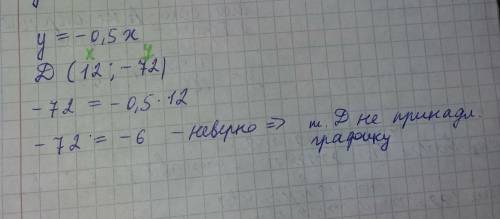 y = -0,5x
x y
Д (12; -72)
-72 = -0,5·12
-72 = -6 - неверно => т. Д не принадл. графику